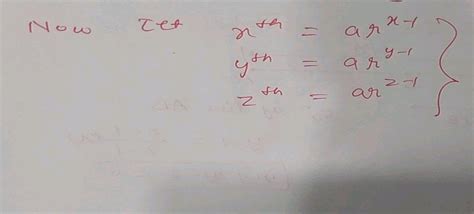 Now Let xᵗʰ = arˣ⁻¹
yᵗʰ = arʸ⁻¹
zᵗʰ = arᶻ⁻¹